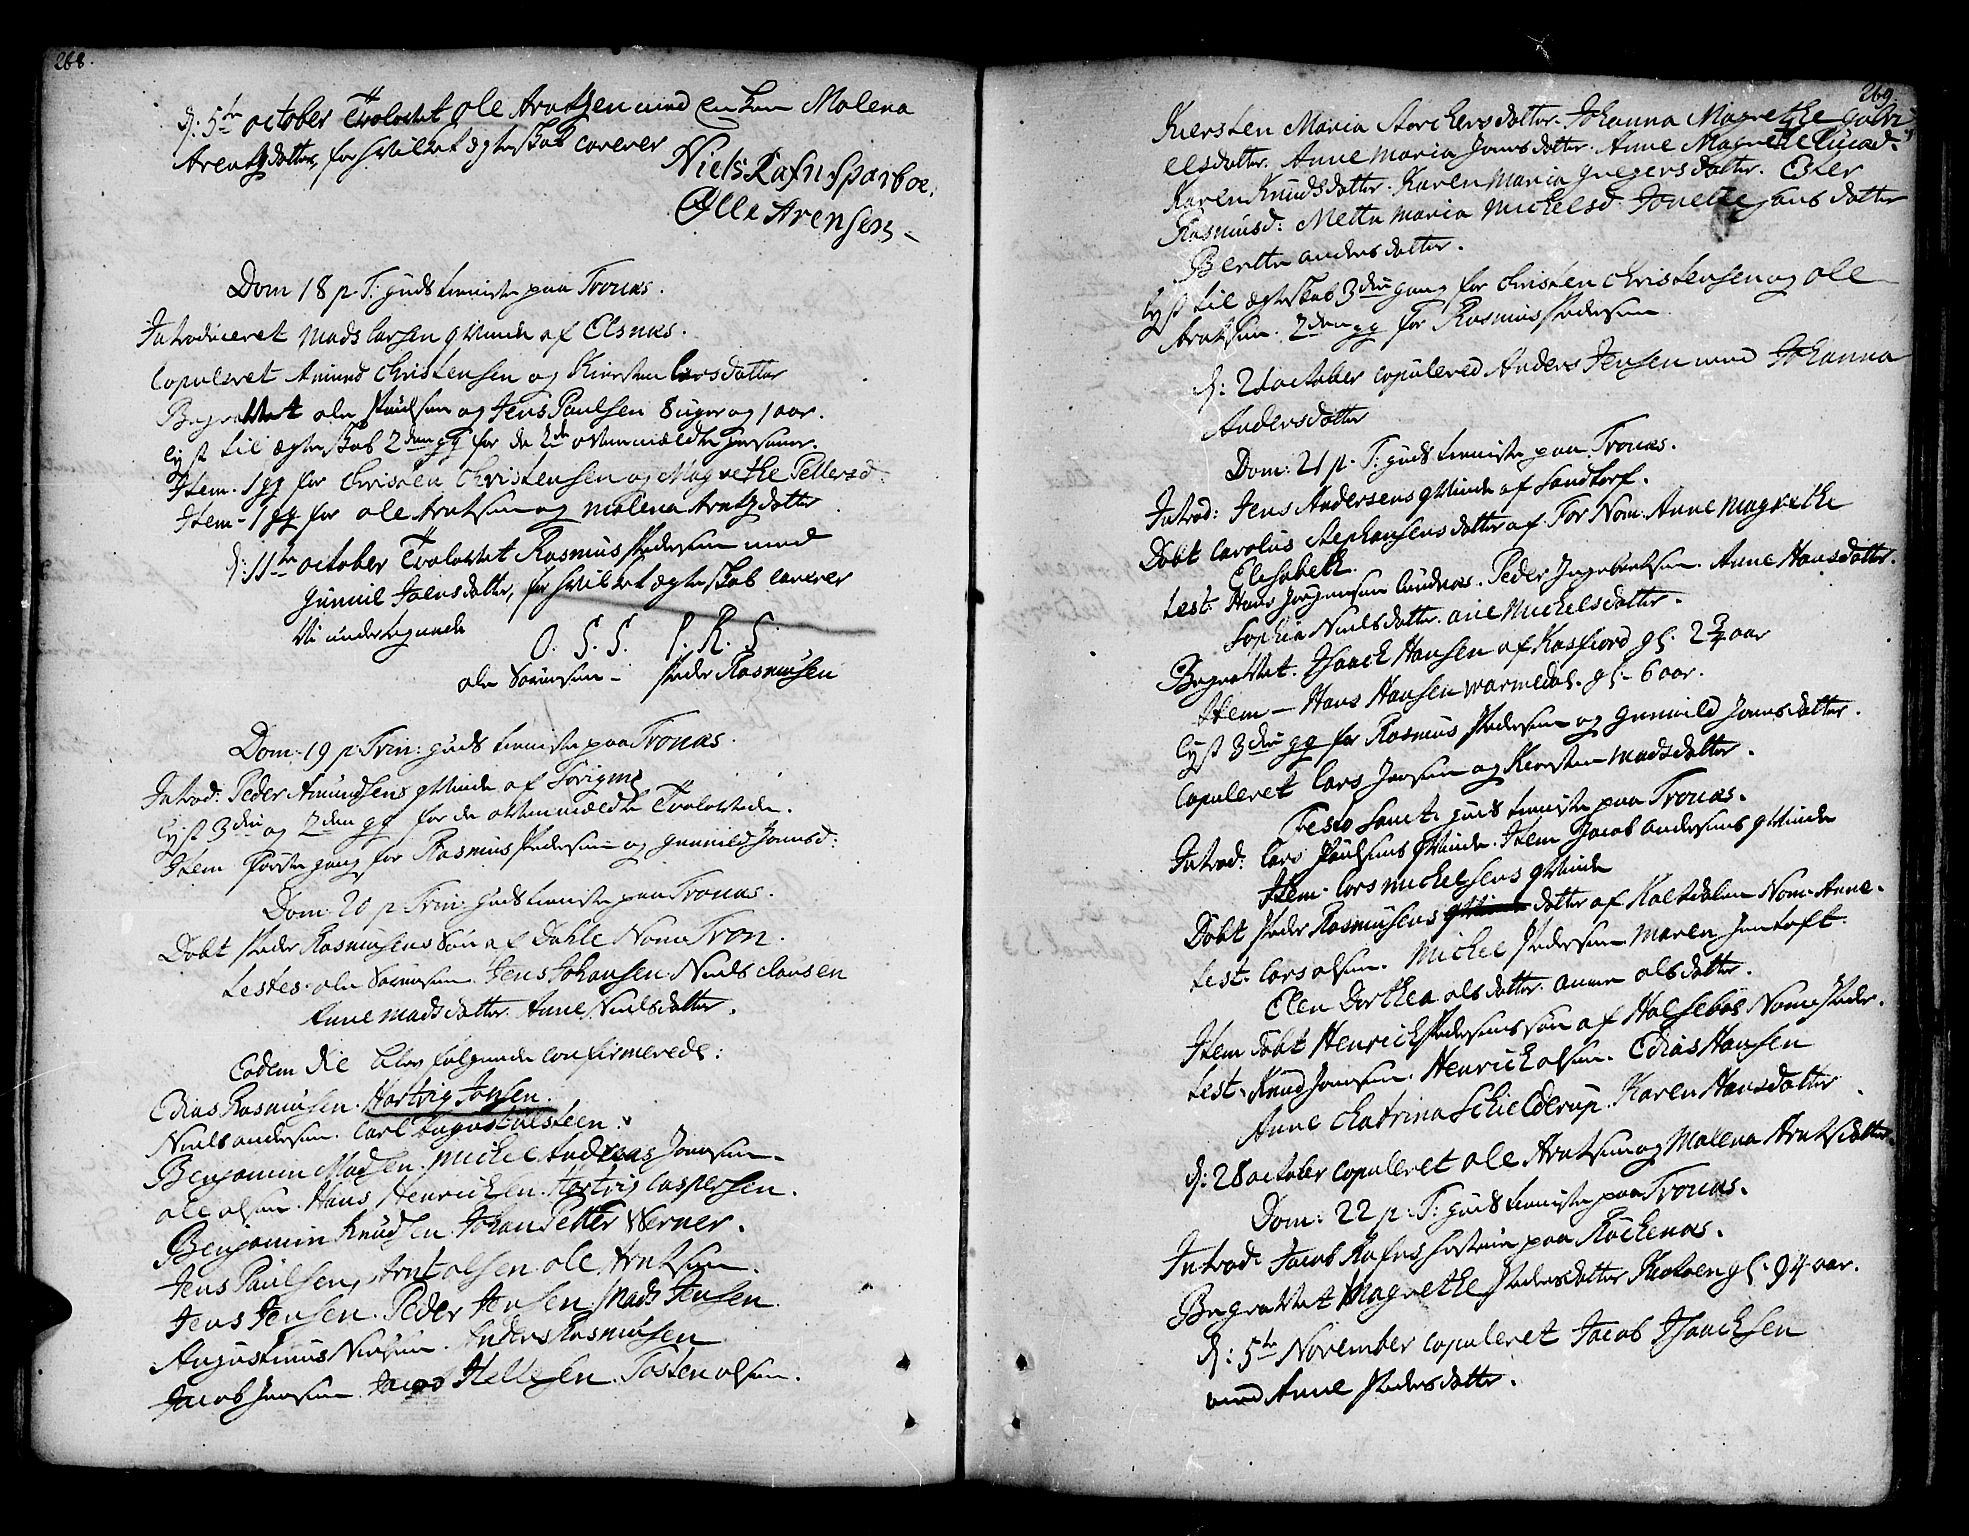 268.
d: 5te october Trolovet ole Arntzen med enken Malena
Arentzdatter, for hvilket ægteskab caverer
Niels Rafn Sparboe,
Olle Arensen
Dom 18 p. T: gudstieniste paa Tronæs.
Introduceret Mads Larsens qvinde af Elsnæs.
Copuleret Amund Christensen og Kiersten Larsdatter
Begravet ole Paulsen og Jens Paulsen 8 uger og 1 aar.
Lyst til ægteskab 2den gg for de 2de ovenmældte Personer.
Item. 1 gg for Christen Christensen og Magrethe Pettersd:
Item - 1 gg for ole Arntsen og Malena Arntzdatter
d: 11te october Trolovet Rasmus Pedersen med
Gunnil Joensdatter, for hvilket ægteskab caverer
Vi undertegnede
O. S. S. P. R. S.
ole Sørensen - Peder Rasmusen
Dom. 19 p. Trin: gudstieniste paa Tronæs.
Introd: Peder Amundsens qvinde af
Lyst 3die og 2den gg for de ovenmældte Trolovede.
Item første gang for Rasmus Pedersen og Gunnild Jonsd:
Dom. 20 p. Trin: gudstieniste paa Tronæs.
Døbt Peder Rasmusens søn af Dahle Nom: Tron.
Testes. ole Sørensen. Jens Johansen. Niels Clausen
Anne Madsdatter. Anne Nielsdatter.
Eodem die blev følgende confirmerede:
Elias Rasmusen. Hartvig Jonsen.
Niels andersen. Carl August
Benjamin Madsen. Michel Andreas Jonsen.
ole olsen. Hans Henrichsen. Hartvig Caspersen.
Benjamin Knudsen. Johan Petter Werner.
Jens Paulsen, Arnt olsen. ole Arntsen.
Jens Jensen. Peder Jensen. Mads Jensen.
Augustinus Nielsen. Anders Rasmusen
Jacob Jonsen. Jacob Tosten olsen.
269
Kiersten Maria Storchersdatter. Johanna Magrethe Gabri
elsdatter. Anne Maria Jonsdatter. Anne Magrethe
Karen Knudsdatter. Karen Maria Gregersdatter. Ester
Rasmusd: Mette Maria Michelsd. Hansdatter
Berthe andersdatter.
Lyst til ægteskab 3die gang for Christen Christensen og ole
Arntsen. 2den gg for Rasmus Pedersen
d: 21 october copulered Anders Jensen med Johanna
Andersdatter
Dom: 21 p. T: gudstieniste paa Tronæs.
Introd: Jens Andersens qvinde af Sandtorf.
Døbt Carolus Stephansens datter af Nom. Anne Magrethe
Elisabeth.
test: Hans Jørgensen Peder Ingebrigtsen. Anne Hansdatter.
Sophia Nielsdatter. ane Michelsdatter.
Begravet. Isaach Hansen af Kasfiord gl. 2¾ aar
Item - Hans Hansen gl. 6 aar.
Lyst 3die gg for Rasmus Pedersen og Gunnild Jonsdatter.
Copuleret Lars Jensen og Kiersten Madsdatter.
Festo Sanct: gudstieniste paa Tronæs.
Introd: Lars Paulsens qvinde. Item Jacob andersens qvinde
Item. Lars Michelsens qvinde
Døbt Peder Rasmusens datter af Kaltdalen Nom. Anne.
test: Lars olsen. Michel Pedersen Maren Jentoft.
Elen Dorthea olsdatter. anne olsdatter.
Item døbt Henrich Pedersens søn af Halsebøe Nom: Peder.
test. Knud Jonsen. Henrich olsen. Elias Hansen
Anne Chatrina Schielderup. Karen Hansdatter
d: 28 october copuleret ole Arntsen og Malena Arntsdatter
Dom: 22 p: T: gudstieniste paa Tronæs.
Introd: Jacob Rafns hustrue paa Røchenæs.
Begravet Magrethe Pedersdatter gl. 94 aar.
d: 5te November copuleret Jacob Isaachsen
med Anne Pedersdatter.